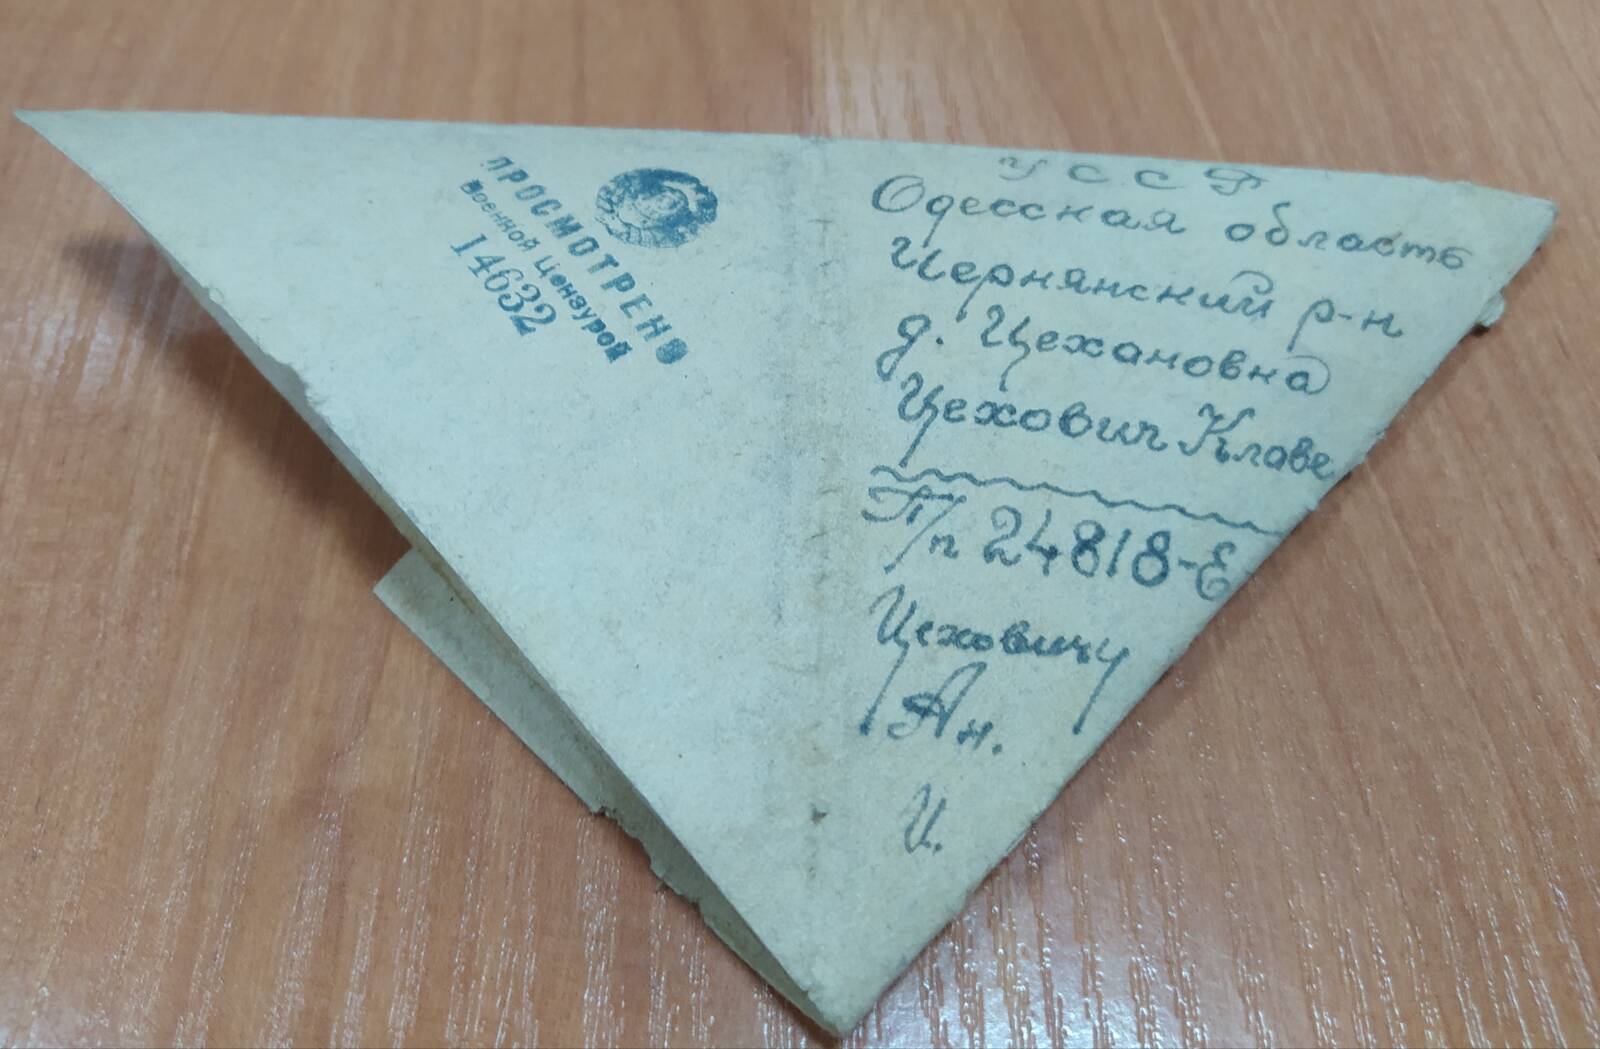 ПРОСМОТРЕНО
Военной Цензурой
14632
УССР
Одесская область
Чернянский р-н
д. Цехановка
Цехович Клаве
П/п 24818-Е
Цеховичу
Ан.
И.